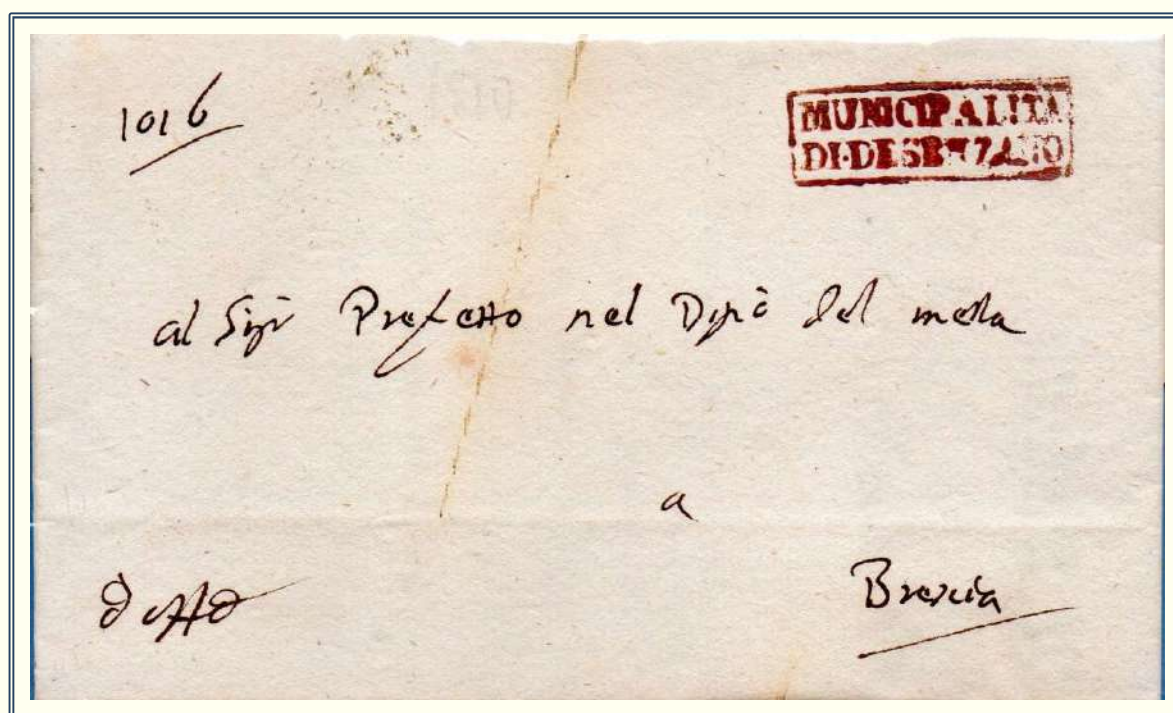 1016
MUNICIPALITA
DI·DESENZANO
al Sigr Prefetto nel Dipto del mella
a
Brescia